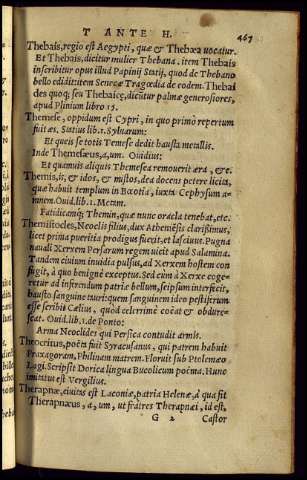 T ANTE H. 467
Thebais, regio est Aegypti, quæ & Thebæa vocatur.
Et Thebais, dicitur mulier Thebana. item Thebais
inscribitur opus illud Papinij Statij, quod de Thebano
bello edidit: item Senecæ Tragœdia de eodem. Thebai
des quoq; seu Thebaicę, dicūtur palmæ generosiores,
apud Plinium libro 15.
Themese, oppidum est Cypri, in quo primò repertum
fuit æs. Statius lib. 1. Sylvarum:
Et queis se totis Temese dedit hausta metallis.
Inde Themesæus, a, um. Ovidius:
Et quamuis aliquis Themesæa removerit æra, &c.
Themis, is, & idos, & mistos, dea docens petere licita,
quæ habuit templum in Bœotia, iuxtà Cephysum a-
mnem. Ovid. lib. 1. Metam.
Fatidicamq; Themin, quæ nunc oracla tenebat, etc.
Themistocles, Neoclis filius, dux Atheniēsis clarißimus,
licet prima pueritia prodigus fuerit, et lascivus. Pugna
navali Xerxem Persarum regem vicit apud Salamina.
Tandem civium invidia pulsus, ad Xerxem hostem con
fugit, à quo benignè exceptus. Sed cùm à Xerxe coge-
retur ad inferendum patriæ bellum, seipsum interficit,
hausto sanguine tauri: quem sanguinem ideo pestiferum
esse scribit Cælius, quòd celerrimè coëat & obdure-
scat. Ovid. lib. 1. de Ponto:
Arma Neoclides qui Persica contudit armis.
Theocritus, poëta fuit Syracusanus, qui patrem habuit
Praxagoram, Philinam matrem. Floruit sub Ptolemæo
Lagi. Scripsit Dorica lingua Bucolicum poëma. Hunc
imitatus est Vergilius.
Therapnæ, civitas est Laconiæ, patria Helenæ, à qua fit
Therapnæus, a, um, ut fratres Therapnæi, id est,
G 2 Castor